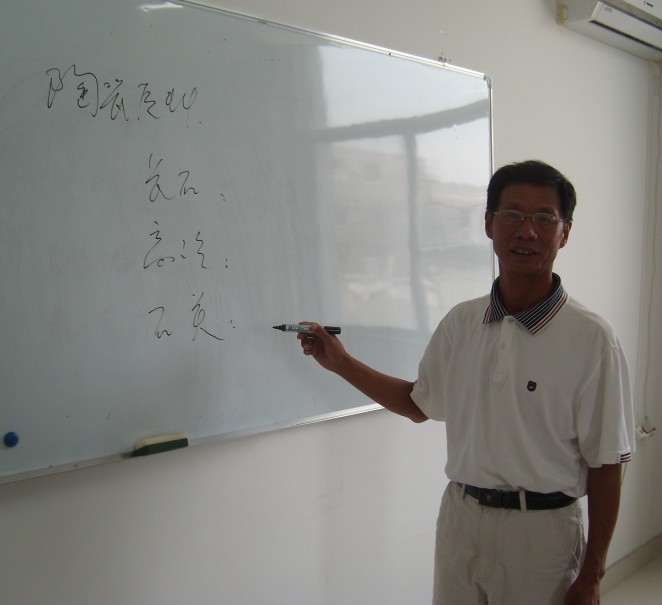 陶瓷原料.
长石:
高岭:
石英: